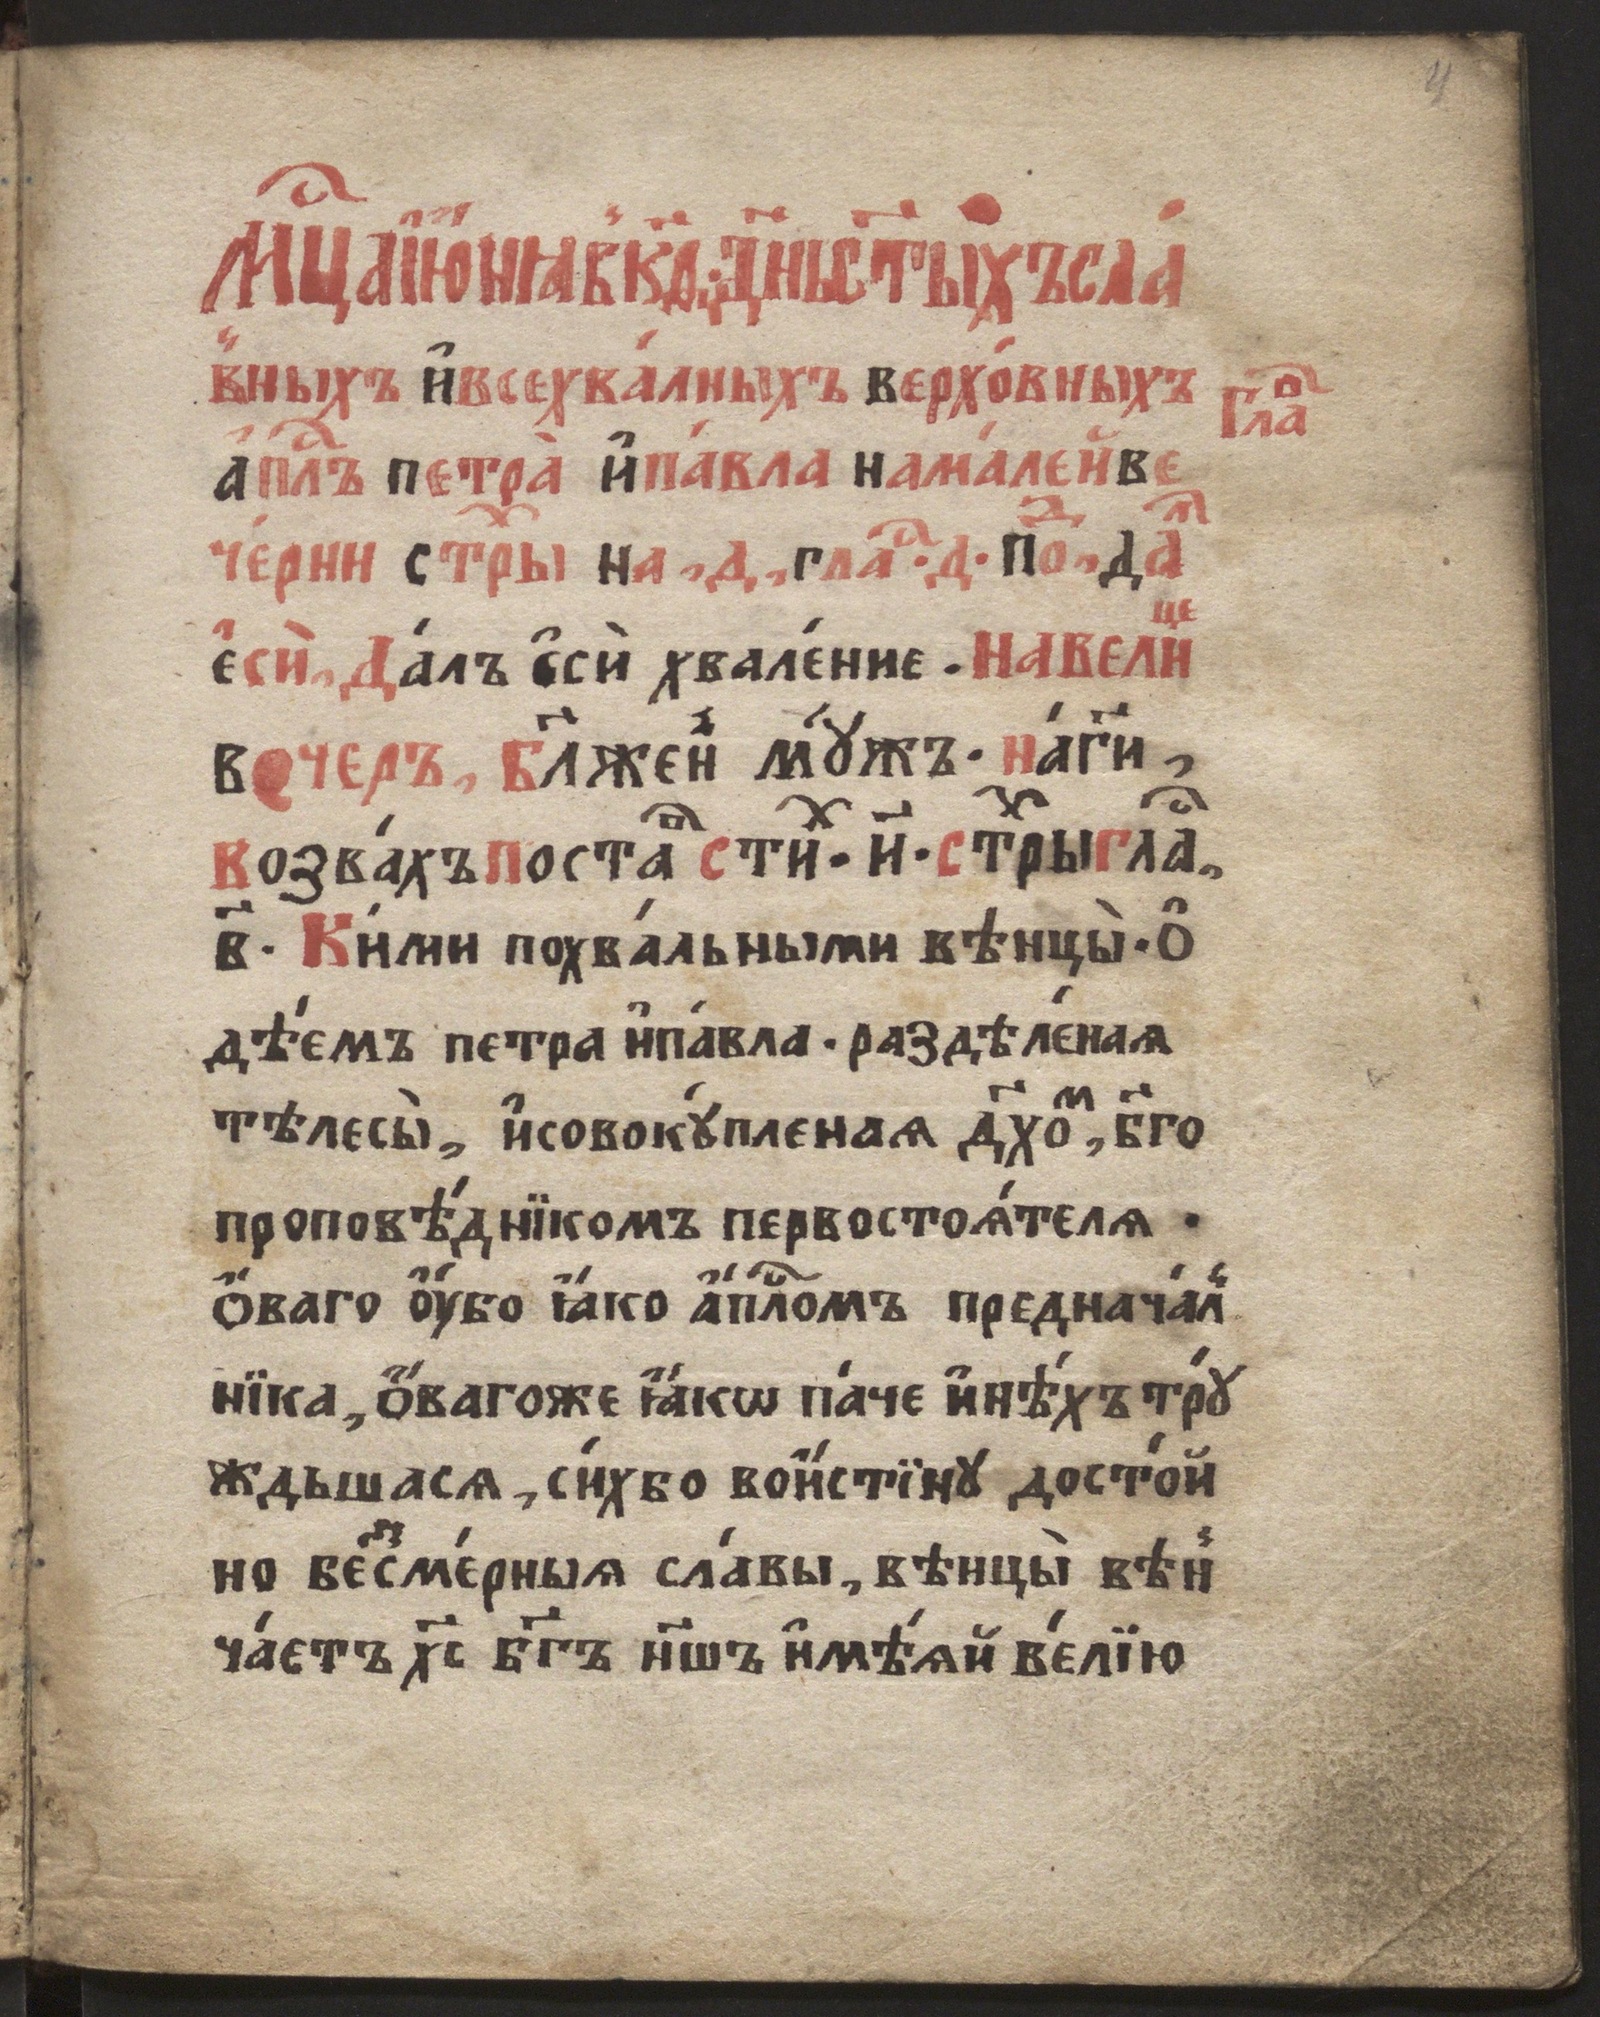 4
Мц҃а ію́нїа в к҃ѳ, дн҃ь ст҃ы́хъ сла́
вныхъ и҆ всехва́лныхъ верхо́вныхъ
Гла̑в
а҆пⷭ҇лъ петра̀ и҆ па́вла на ма́лей ве
че́рни стⷯры на, д, глаⷭ҇. д. поⷣ, даⷧ҇
є҆сѝ, Да́лъ є҆сѝ хвале́ние. На вели
це
вечеръ, Бл҃же́н мꙋ́жъ. на́ г҃и,
возва́хъ постаⷡ҇ стиⷯ. и҃. стⷯры глаⷭ҇,
в҃. Ки́ми похва́льными вѣнцы̀. ѻ҆
дѣ́емъ петра и҆ па́вла. раздѣле́наѧ
тѣлесы̀, и҆ совокꙋ́пленаѧ дх҃оⷨ, бг҃о
проповѣ́днїкомъ первостоѧ́телѧ.
Ѻ҆́ваго ѹ҆́бо ꙗ҆́ко а҆пⷭ҇ломъ преднача́л
нїка, ѻ҆́вагоже ꙗ҆́кѡ па́че и҆нѣ́хъ трꙋ́
ждьшасѧ, си́хбо вои́стїнꙋ досто́й
но бесме́рныѧ сла́вы, вѣнцы̀ вѣн
ча́етъ хс҃ бг҃ъ нш҃ъ и҆мѣ́ѧй ве́лїю